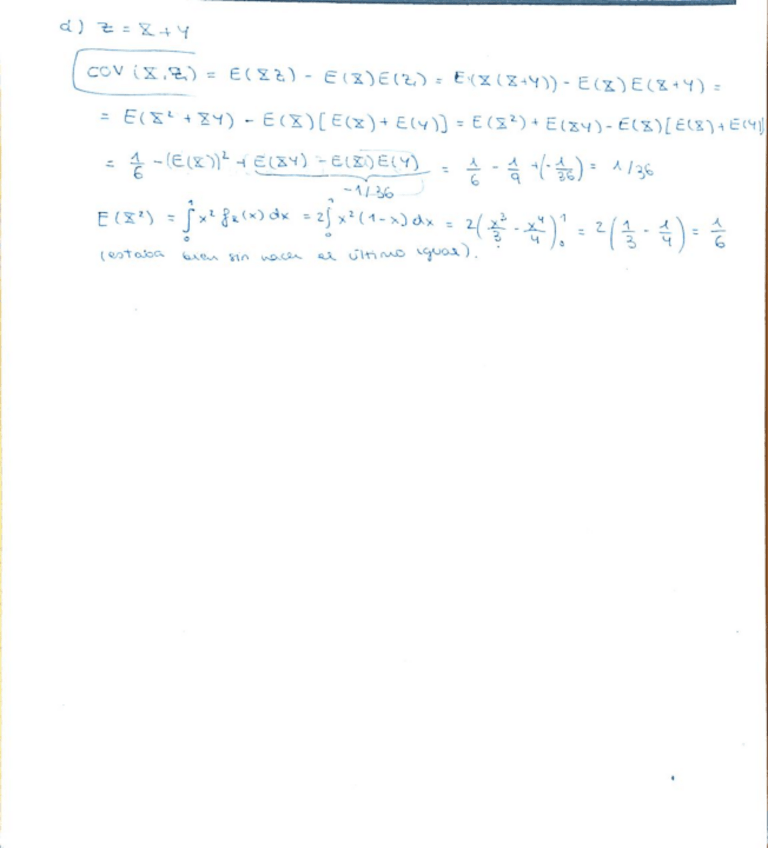 d) Z = X + Y
COV (X, Z) = E(XZ) - E(X)E(Z) = E(X(X+Y)) - E(X)E(X+Y) =
= E(X² + XY) - E(X)[E(X) + E(Y)] = E(X²) + E(XY) - E(X)[E(X) + E(Y)]
= 1/6 - (E(X))² + E(XY) - E(X)E(Y) = 1/6 - 1/9 + (-1/36) = 1/36
-1/36
E(X²) = ∫₀¹ x² fx(x) dx = 2∫₀¹ x² (1-x) dx = 2(x³/3 - x⁴/4)₀¹ = 2(1/3 - 1/4) = 1/6
(estaba bien sin hacer el último igual).